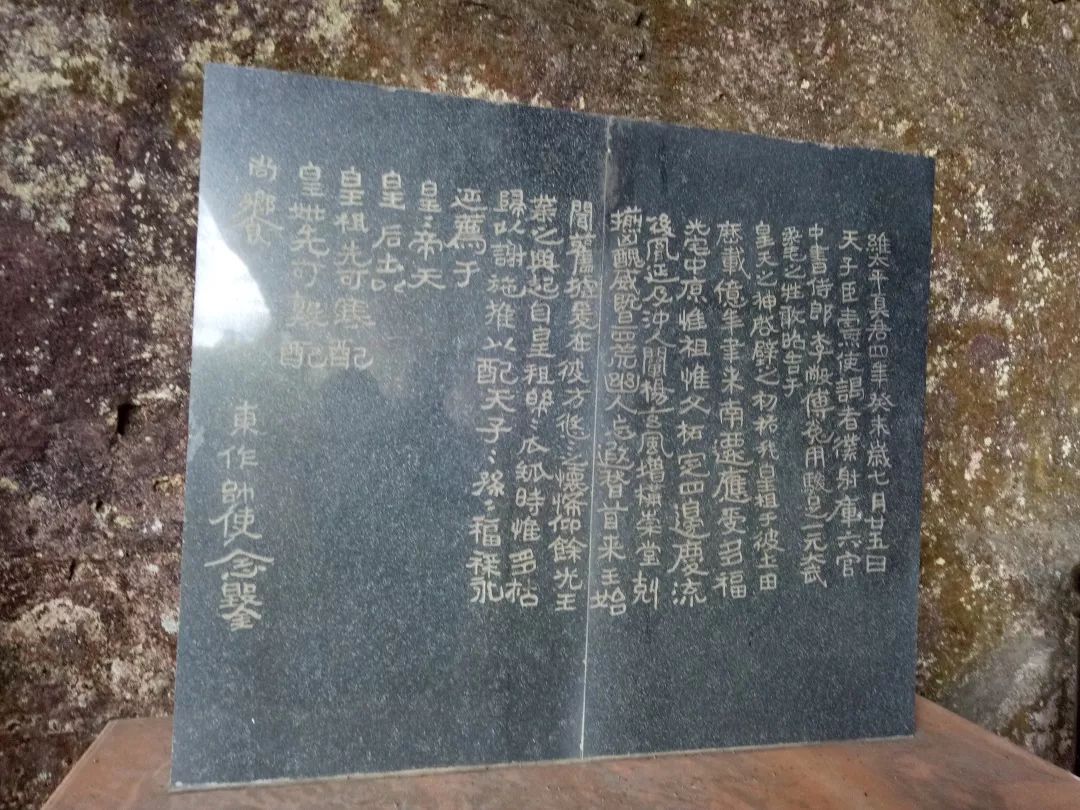 維太平真君四年癸未歲七月廿五日
天子臣燾使謁者僕射庫六官
中書侍郎李敞傅㝹用駿足一元大武
柔毛之牲敢昭告于
皇天之神啟辟之初祐我皇祖于彼土田
歷載億年聿來南遷應受多福
光宅中原惟祖惟父拓定四邊慶流
後胤延及沖人闡揚玄風增構崇堂剋
揃凶醜威暨四荒幽人忘遐稽首來王始
聞舊墟爰在彼方悠〻之懷希仰餘光王
業之興起自皇祖綿〻瓜瓞時惟多祜
歸以謝施推以配天子〻孫〻福祿永
延薦于
皇〻帝天
皇〻后土以
皇祖先可寒配
皇妣先可敦配
尚饗
東作帥使念鑿